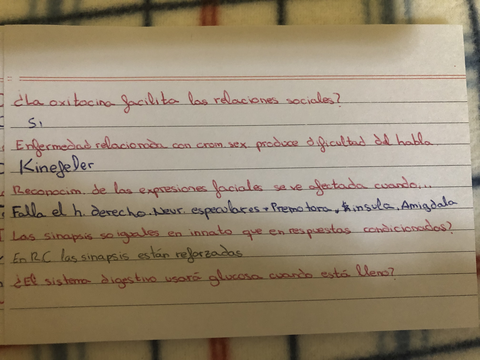 ¿La oxitocina facilita las relaciones sociales?
Sí
Enfermedad relacionada con crom. sex produce dificultad del habla.
Kinefelder
Reconocim. de las expresiones faciales se ve afectada cuando...
Falla el h. derecho. Neur. especulares + Premotora, ínsula. Amigdala
Las sinapsis so iguales en innato que en respuestas condicionados?
En RC las sinapsis están reforzadas
¿El sistema digestivo usará glucosa cuando está lleno?